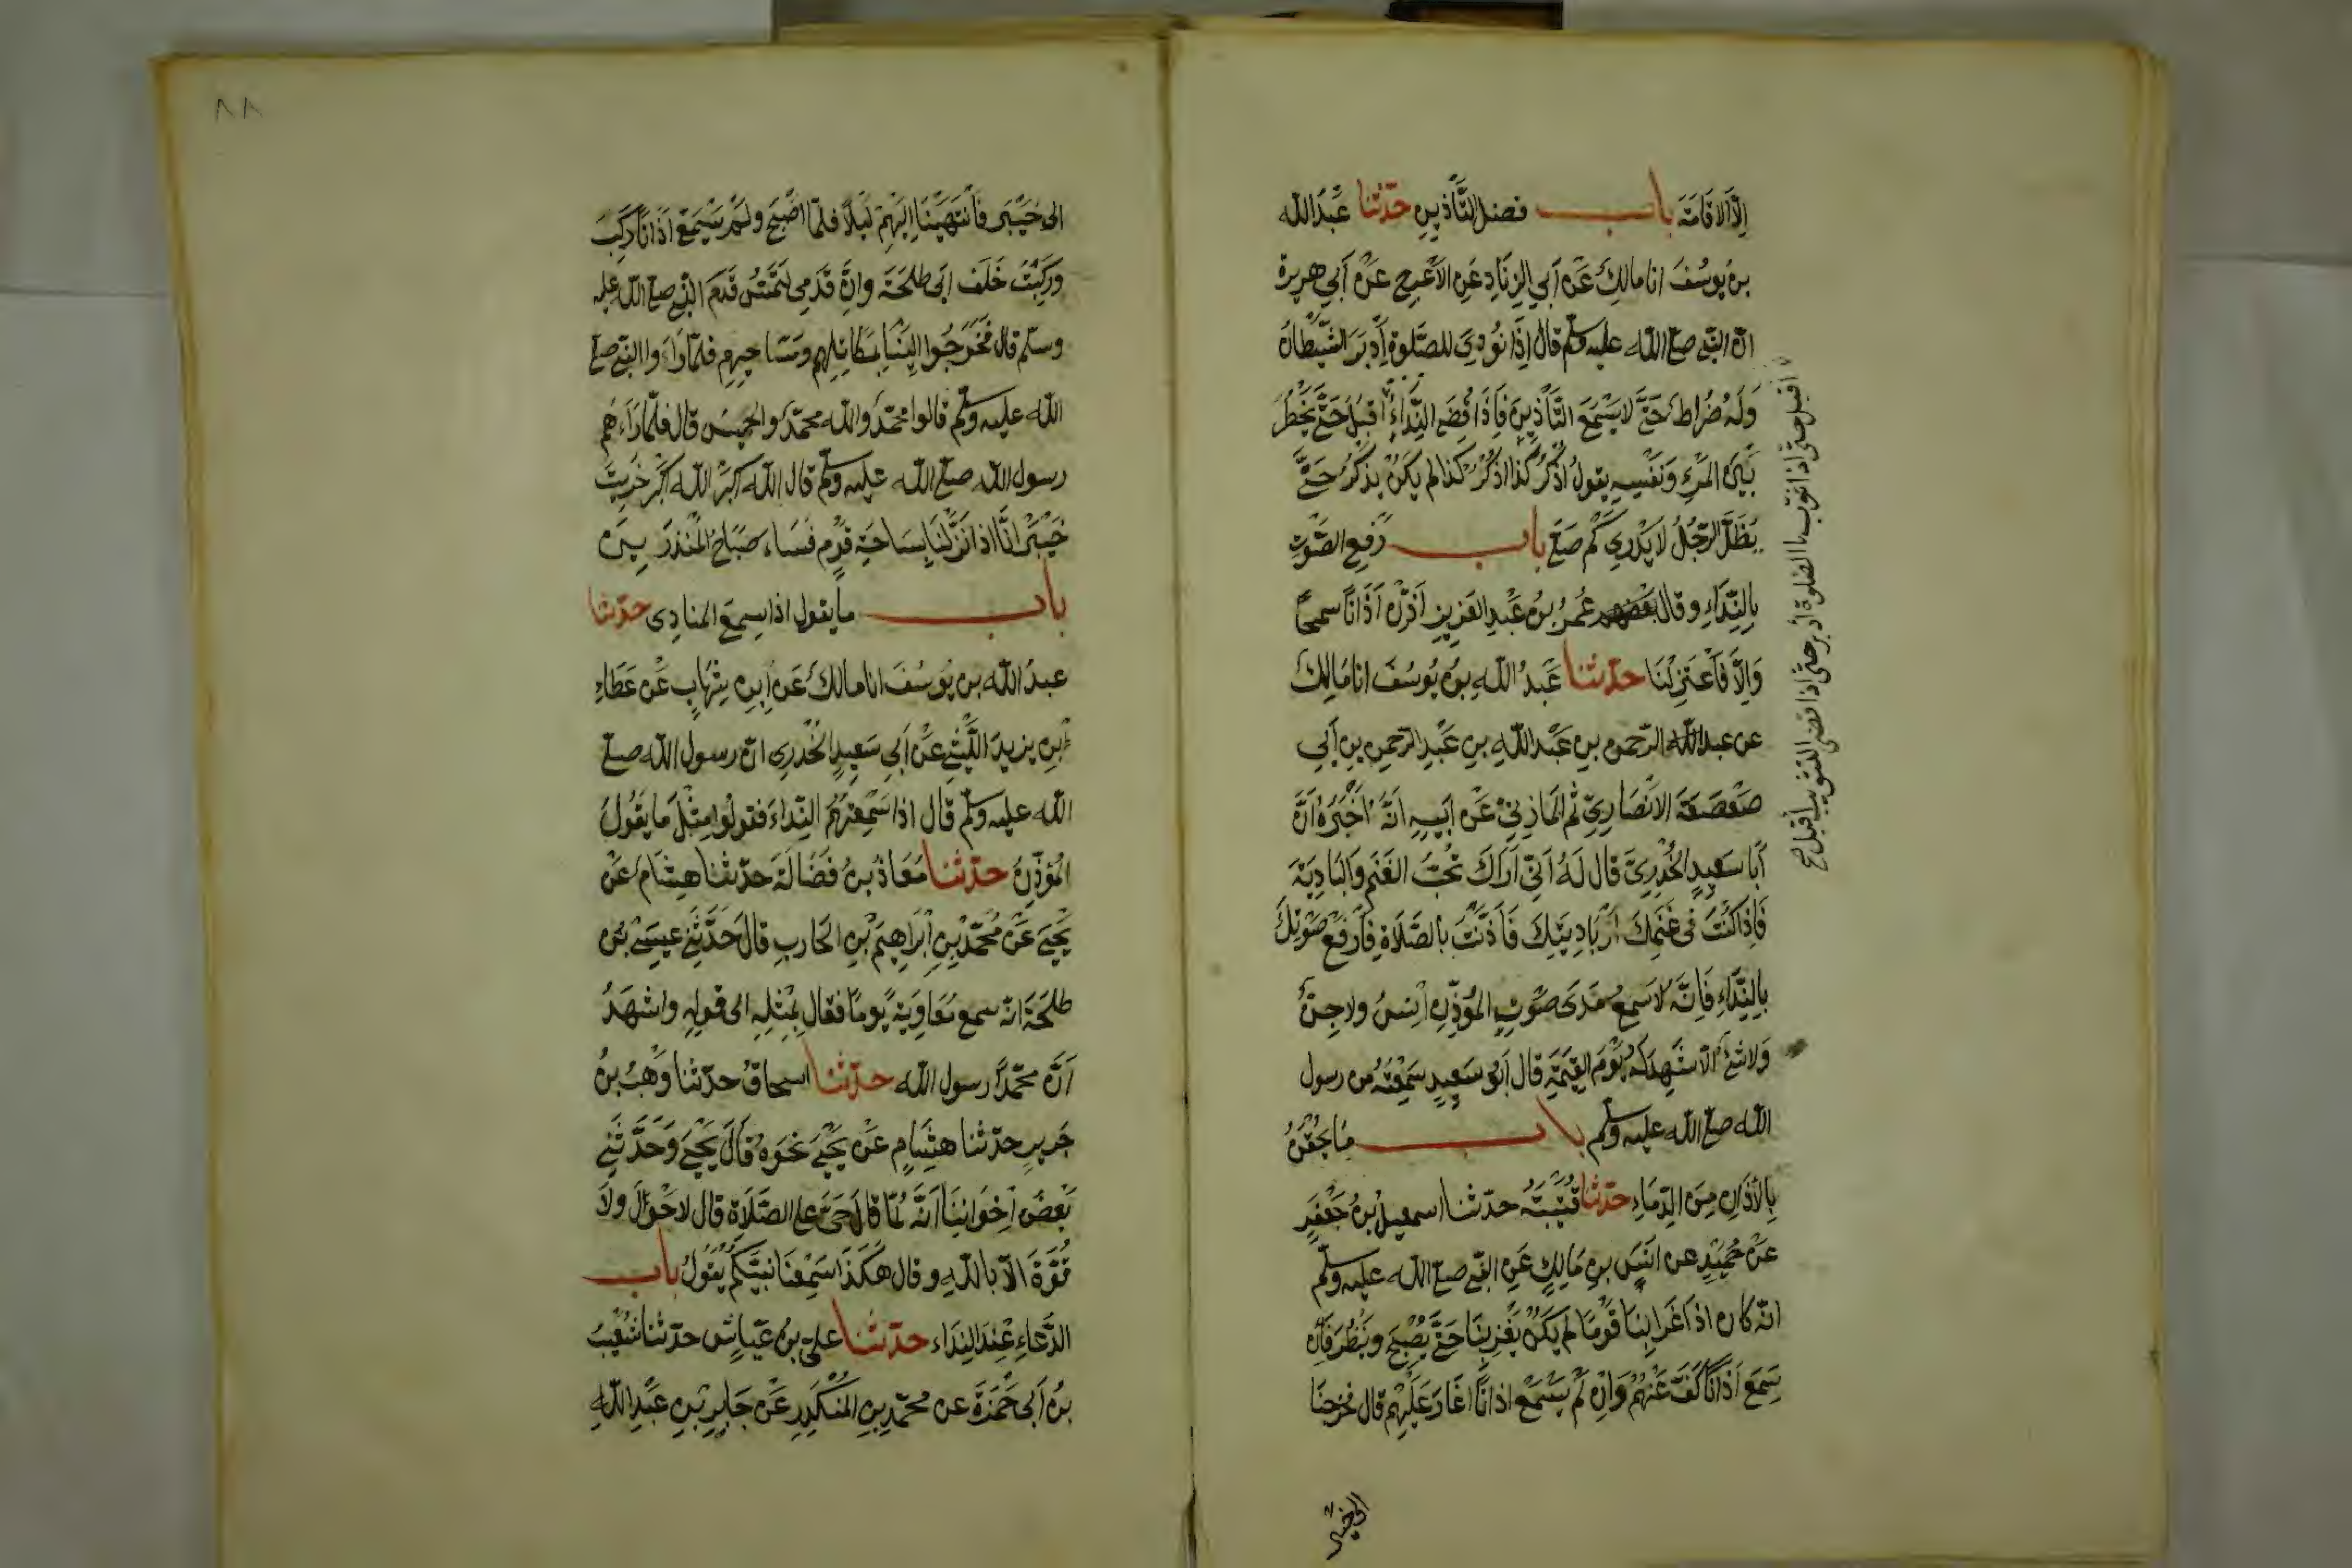 الا الاقامة باب فضل التأذين حدثنا عبد الله
بن يوسف انا مالك عن أبي الزناد عن الاعرج عن أبي هريرة
ان النبي صلى الله عليه وسلم قال إذا نودي للصلوة أدبر الشيطان
وله ضراط حتى لا يسمع التأذين فإذا قضى النداء أقبل حتى يخطر
بين المرء ونفسه يقول اذكر كذا اذكر كذا لم يكن يذكر حتى
يظل الرجل لا يدري كم صلى باب رفع الصوت
بالنداء وقال عمر بن عبد العزيز أذن أذانا سمحا
والا فاعتزلنا حدثنا عبد الله بن يوسف انا مالك
عن عبد الرحمن بن عبد الله بن عبد الرحمن بن أبي
صعصعة الانصاري ثم المازني عن أبيه أنه أخبره أن
أبا سعيد الخدري قال له اني أراك تحب الغنم والبادية
فإذا كنت في غنمك أو باديتك فأذنت بالصلاة فارفع صوتك
بالنداء فإنه لا يسمع مدى صوت المؤذن إنس ولا جن
ولا شئ الا شهد له يوم القيمة قال أبو سعيد سمعته من رسول
الله صلى الله عليه وسلم باب ما يحقن
بالأذان من الدماء حدثنا قتيبة حدثنا اسمعيل بن جعفر
عن حميد عن انس بن مالك عن النبي صلى الله عليه وسلم
انه كان اذا غزا بنا قوما لم يكن يغز بنا حتى يصبح وينظر فإن
سمع أذانا كف عنهم وان لم يسمع اذانا أغار عليهم قال فخرجنا
الى خيبر
أقبل حتى اذا ثوب بالصلوة أدبر حتى اذا قضى التثويب أقبل صح
٨٨
الى خيبر فانتهينا إليهم ليلا فلما اصبح ولم يسمع أذانا ركب
وركبت خلف ابي طلحة وان قدمي لتمس قدم النبي صلى الله عليه
وسلم قال فخرجوا الينا بمكاتلهم ومساحيهم فلما رأوا النبي صلى
الله عليه وسلم قالوا محمد والله محمد والخميس قال فلما رآهم
رسول الله صلى الله عليه وسلم قال الله اكبر الله اكبر خربت
خيبر انا اذا نزلنا بساحة قوم فساء صباح المنذرين
باب ما يقول اذا سمع المنادى حدثنا
عبد الله بن يوسف انا مالك عن ابن شهاب عن عطاء
ابن يزيد الليثي عن أبي سعيد الخدري ان رسول الله صلى
الله عليه وسلم قال اذا سمعتم النداء فقولوا مثل ما يقول
المؤذن حدثنا معاذ بن فضالة حدثنا هشام عن
يحيى عن محمد بن ابراهيم بن الحارث قال حدثني عيسى بن
طلحة انه سمع معاوية يوما فقال بمثله الى قوله واشهد
أن محمدا رسول الله حدثنا اسحاق حدثنا وهب بن
جرير حدثنا هشام عن يحيى نحوه قال يحيى وحدثني
بعض إخواننا أنه لما قال حي على الصلاة قال لا حول ولا
قوة الا بالله وقال هكذا سمعنا نبيكم يقول باب
الدعاء عند النداء حدثنا علي بن عياش حدثنا شعيب
بن أبي حمزة عن محمد بن المنكدر عن جابر بن عبد الله